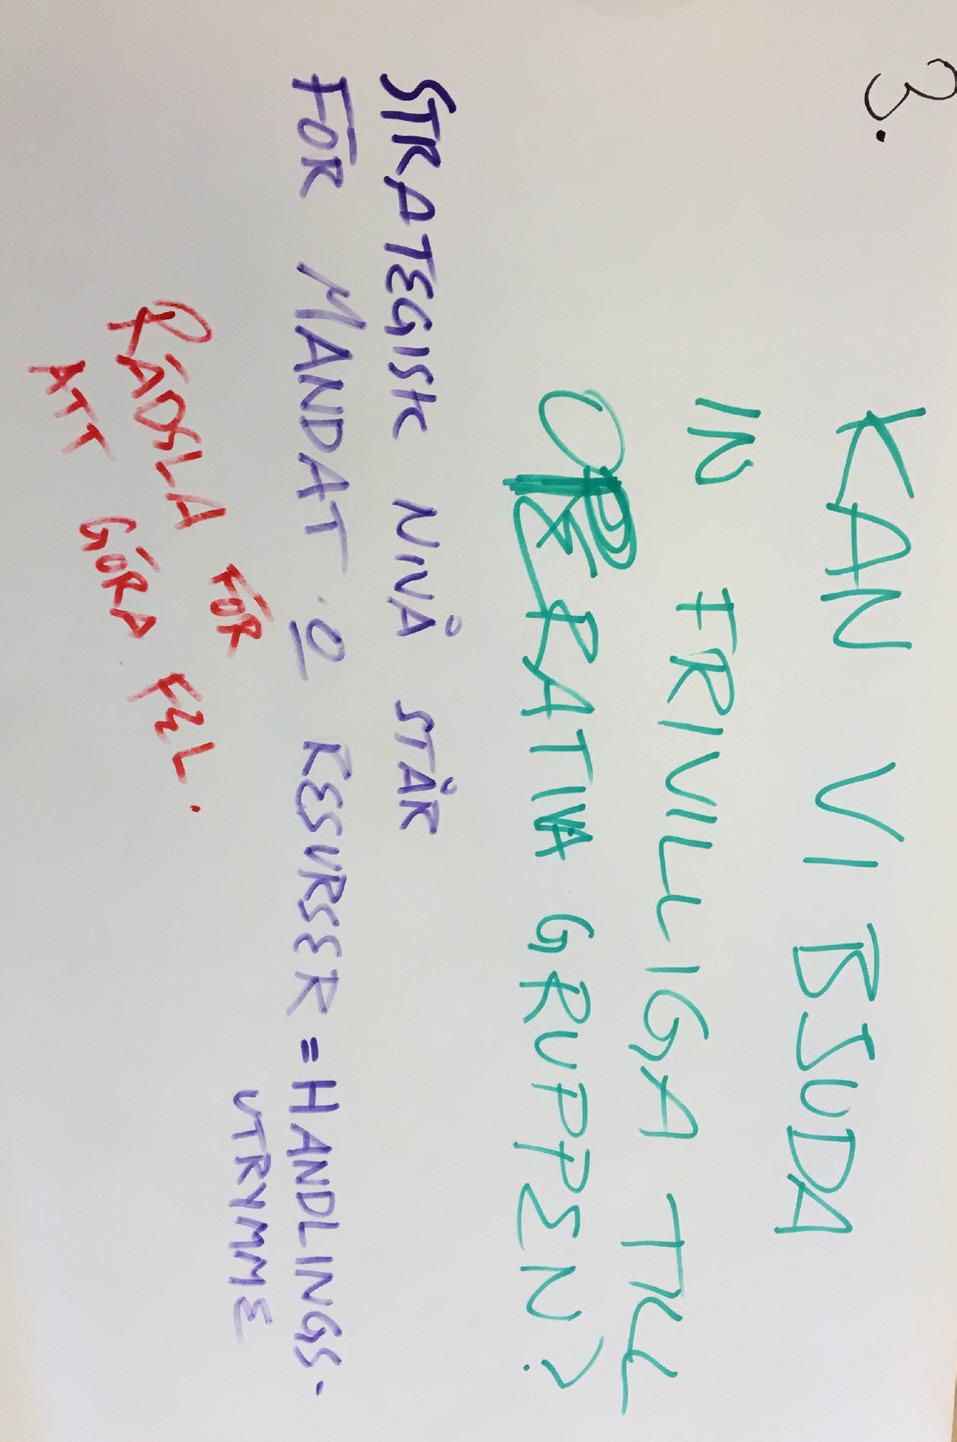 3.
KAN VI BJUDA
IN FRIVILLIGA TILL
OPERATIVA GRUPPEN?
STRATEGISK NIVÅ STÅR
FÖR MANDAT O RESURSER = HANDLINGS-
UTRYMME
RÄDSLA FÖR
ATT GÖRA FEL.